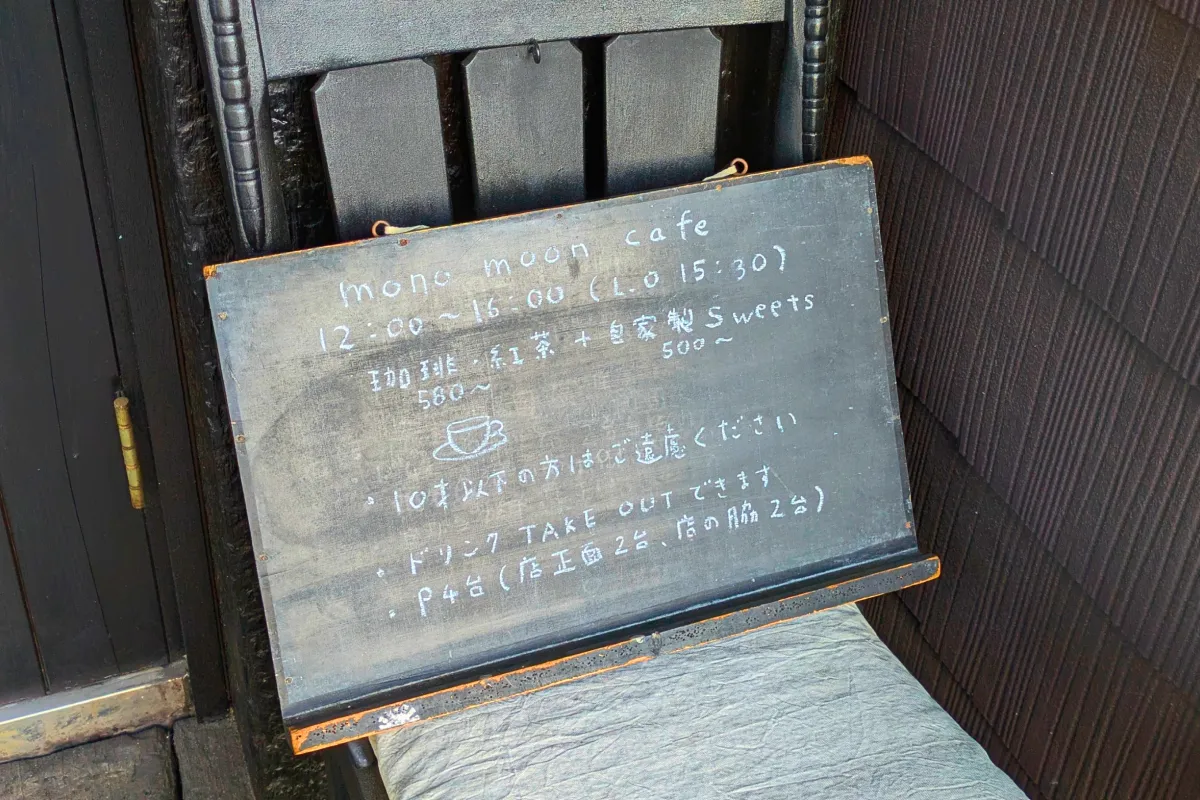 mono moon cafe
12:00～16:00 (L.O 15:30)
珈琲・紅茶 + 自家製 Sweets
580～ 500～
・10才以下の方はご遠慮ください
・ドリンク TAKE OUT できます
・P4台(店正面2台、店の脇2台)